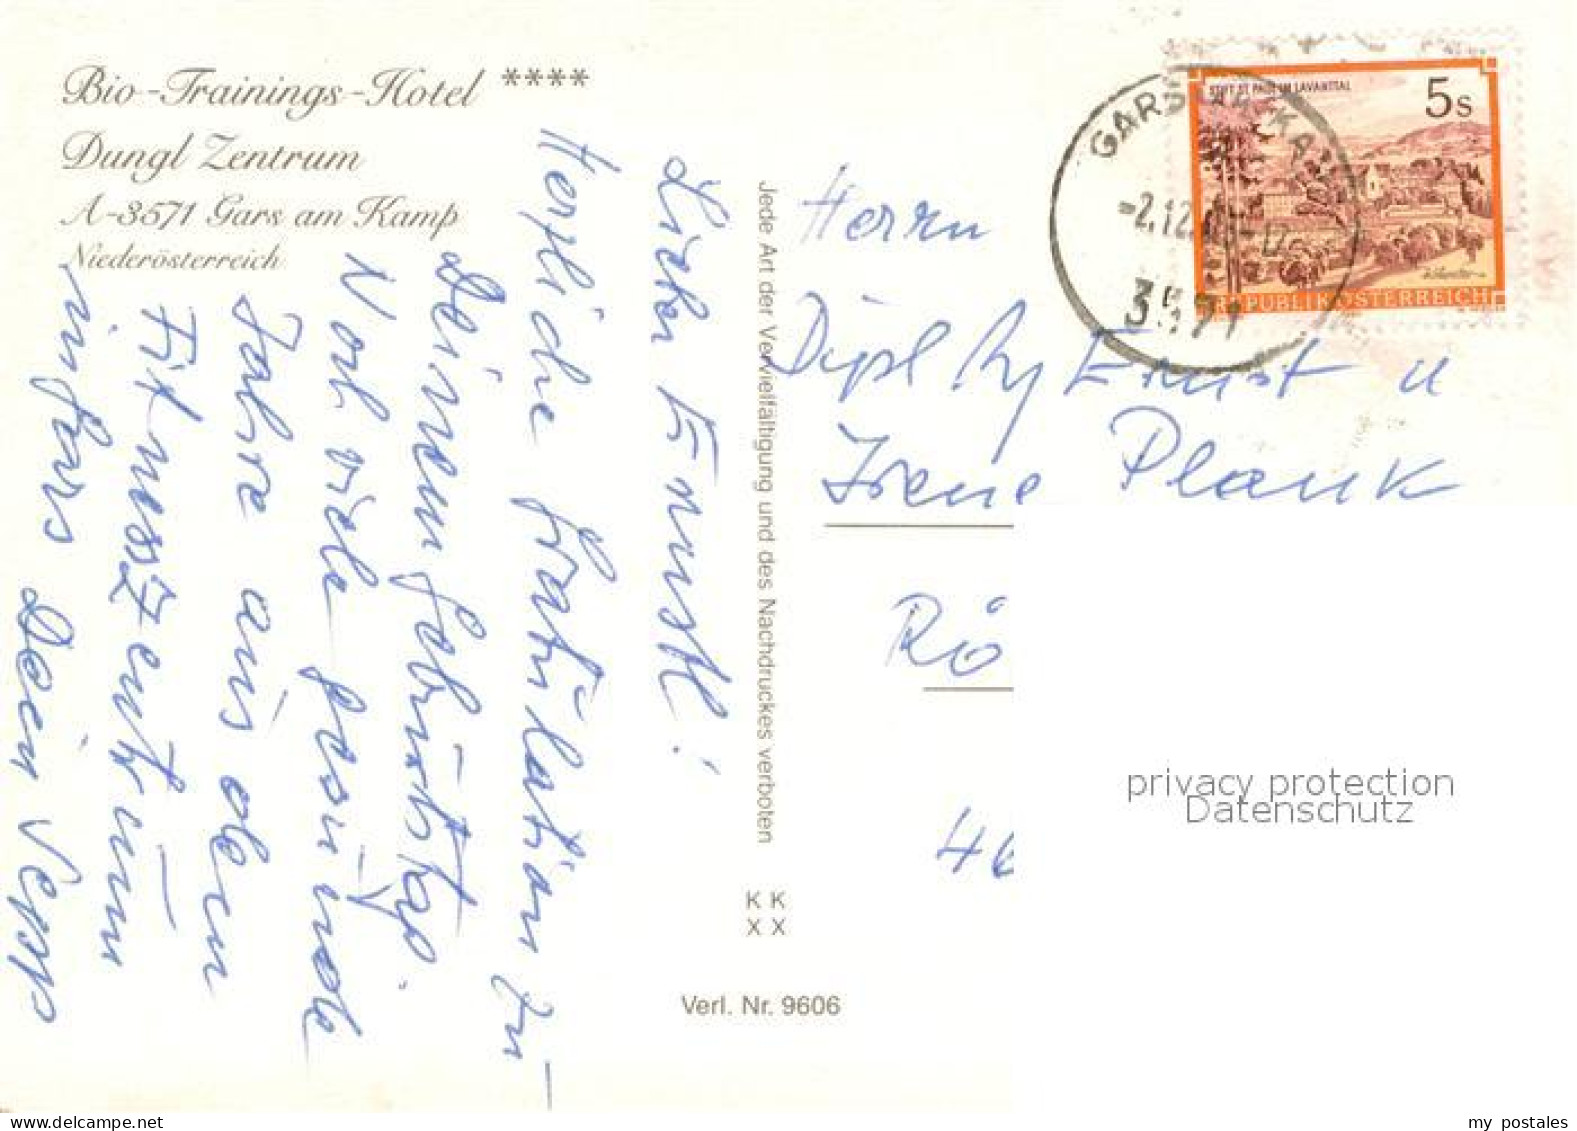 Bio-Trainings-Hotel ****
Dungl Zentrum
A-3571 Gars am Kamp
Niederösterreich
Lieber Ernstl!
Herzliche Gratulation zu
Deinem Geburtstag.
Noch viele gesunde
Jahre aus dem
Fitnesszentrum
in Gars Dein Sepp
Jede Art der Vervielfältigung und des Nachdruckes verboten
K K
X X
Verl. Nr. 9606
GARS KA
-2.12.
3571
STIFT ST. PAUL IM LAVANTTAL
5s
REPUBLIK ÖSTERREICH
Herrn
Dipl Ing Ernst u
Irene Plank
Rö
46
privacy protection
Datenschutz
my postales